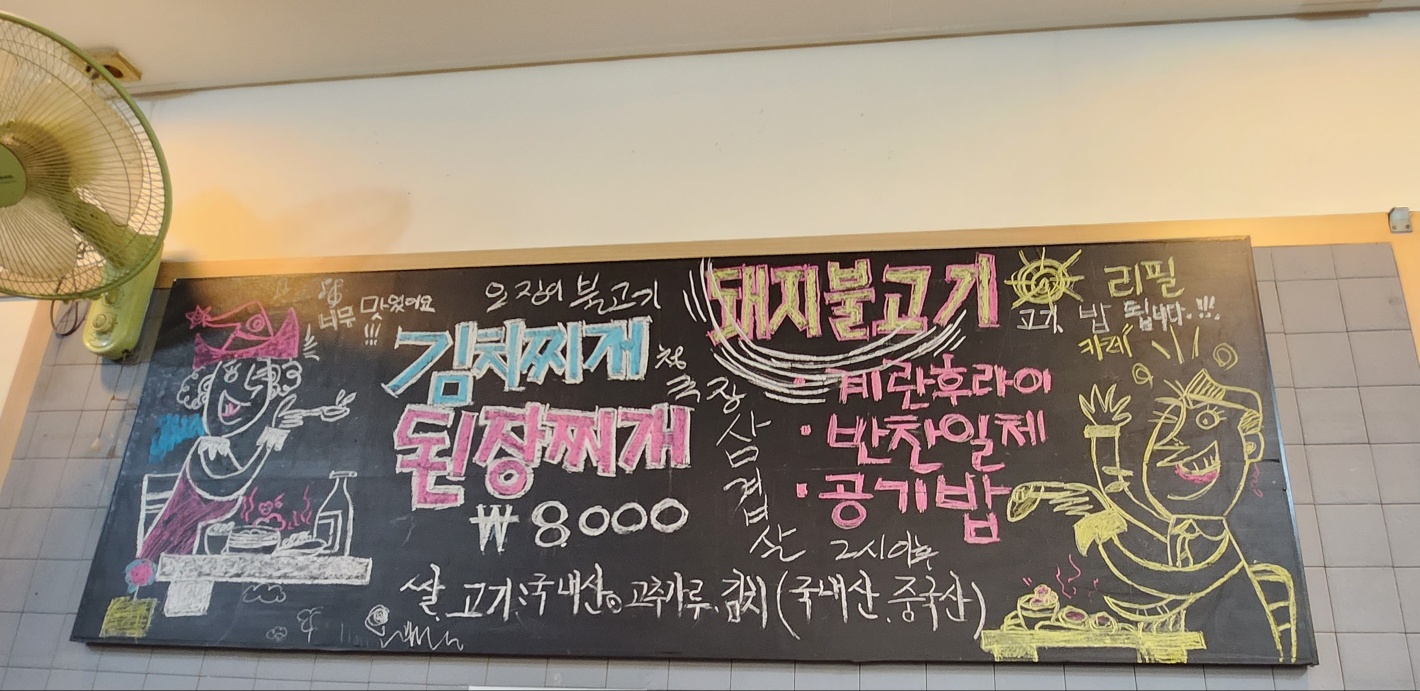 너무 맛있어요
!!!
오징어 불고기
김치찌개
된장찌개
₩ 8.000
청국장
삼겹살
돼지불고기
리필
고기, 밥 됩니다.!!!
카레
· 계란후라이
· 반찬일체
· 공기밥
2시이후
쌀.고기:국내산。고추가루.김치(국내산.중국산)